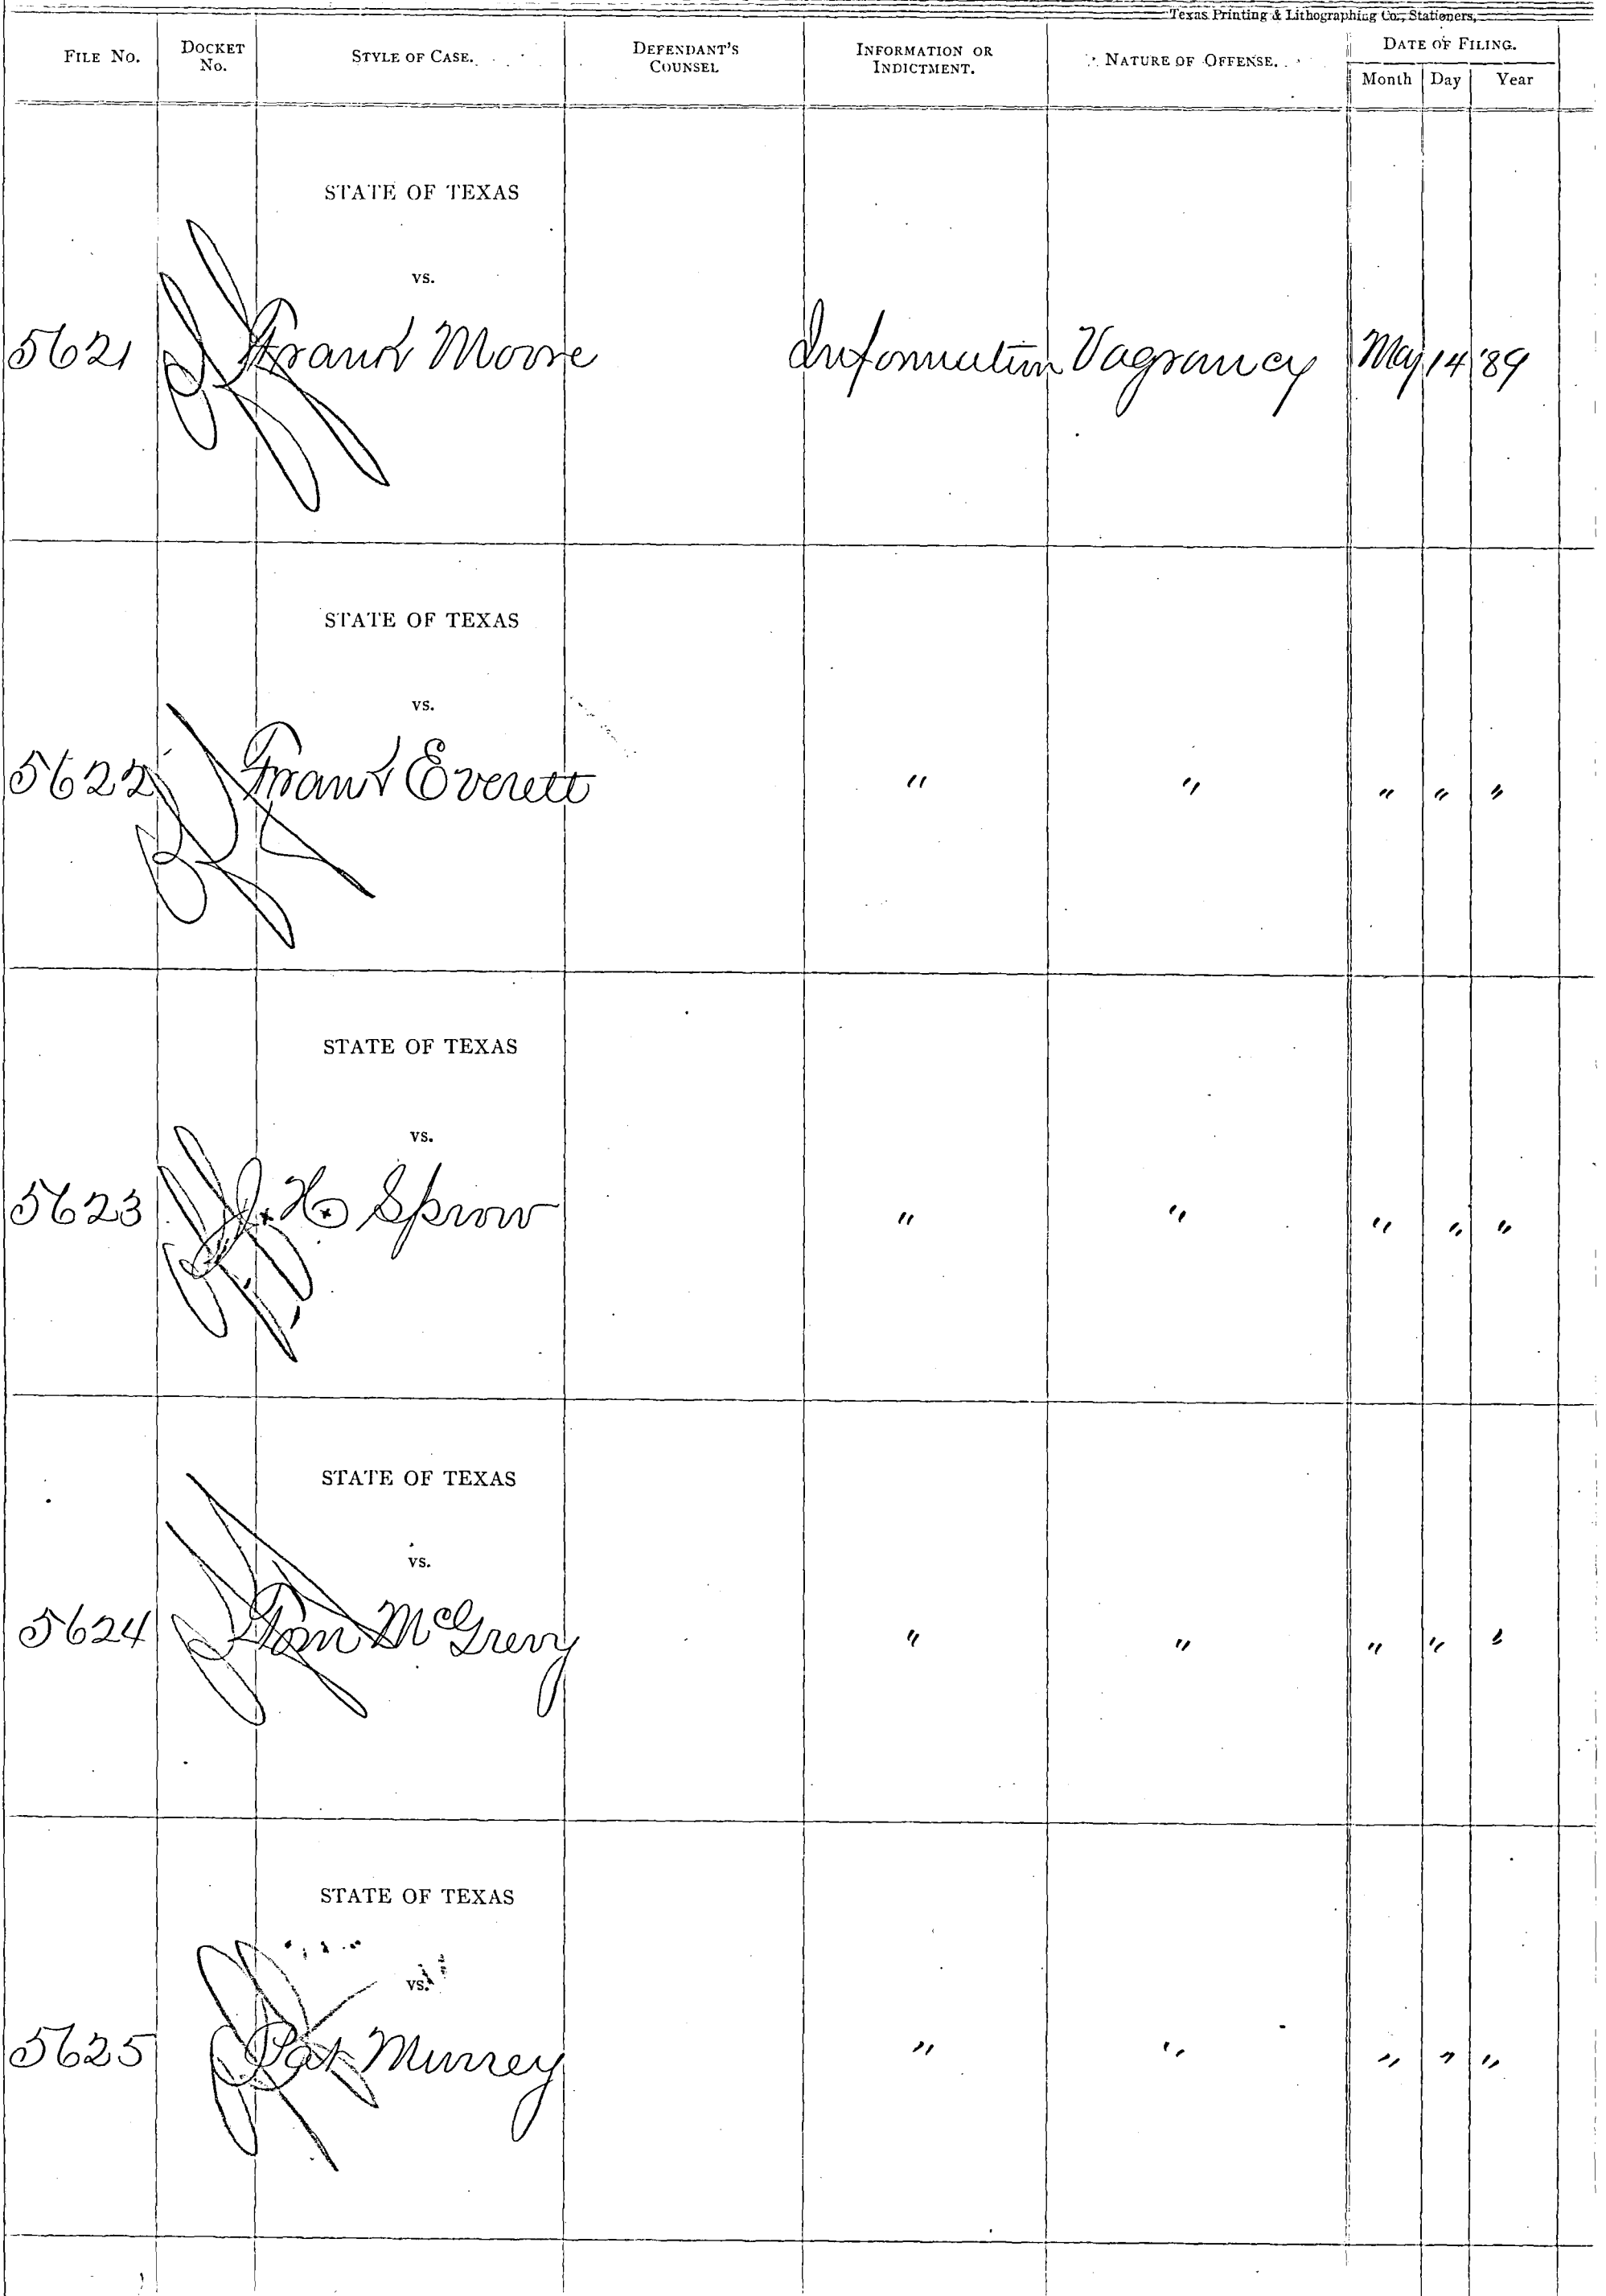 Texas Printing & Lithographing Co., Stationers,
FILE No. DOCKET No. STYLE OF CASE. DEFENDANT'S COUNSEL INFORMATION OR INDICTMENT. NATURE OF OFFENSE. DATE OF FILING.
Month Day Year
STATE OF TEXAS
vs.
5621 Frank Moore Information Vagrancy May 14 89
STATE OF TEXAS
vs.
5622 Frank Everett " " " " "
STATE OF TEXAS
vs.
5623 J. H. Sprow " " " " "
STATE OF TEXAS
vs.
5624 McGrevy " " " " "
STATE OF TEXAS
vs.
5625 Pat Murrey " " " " "